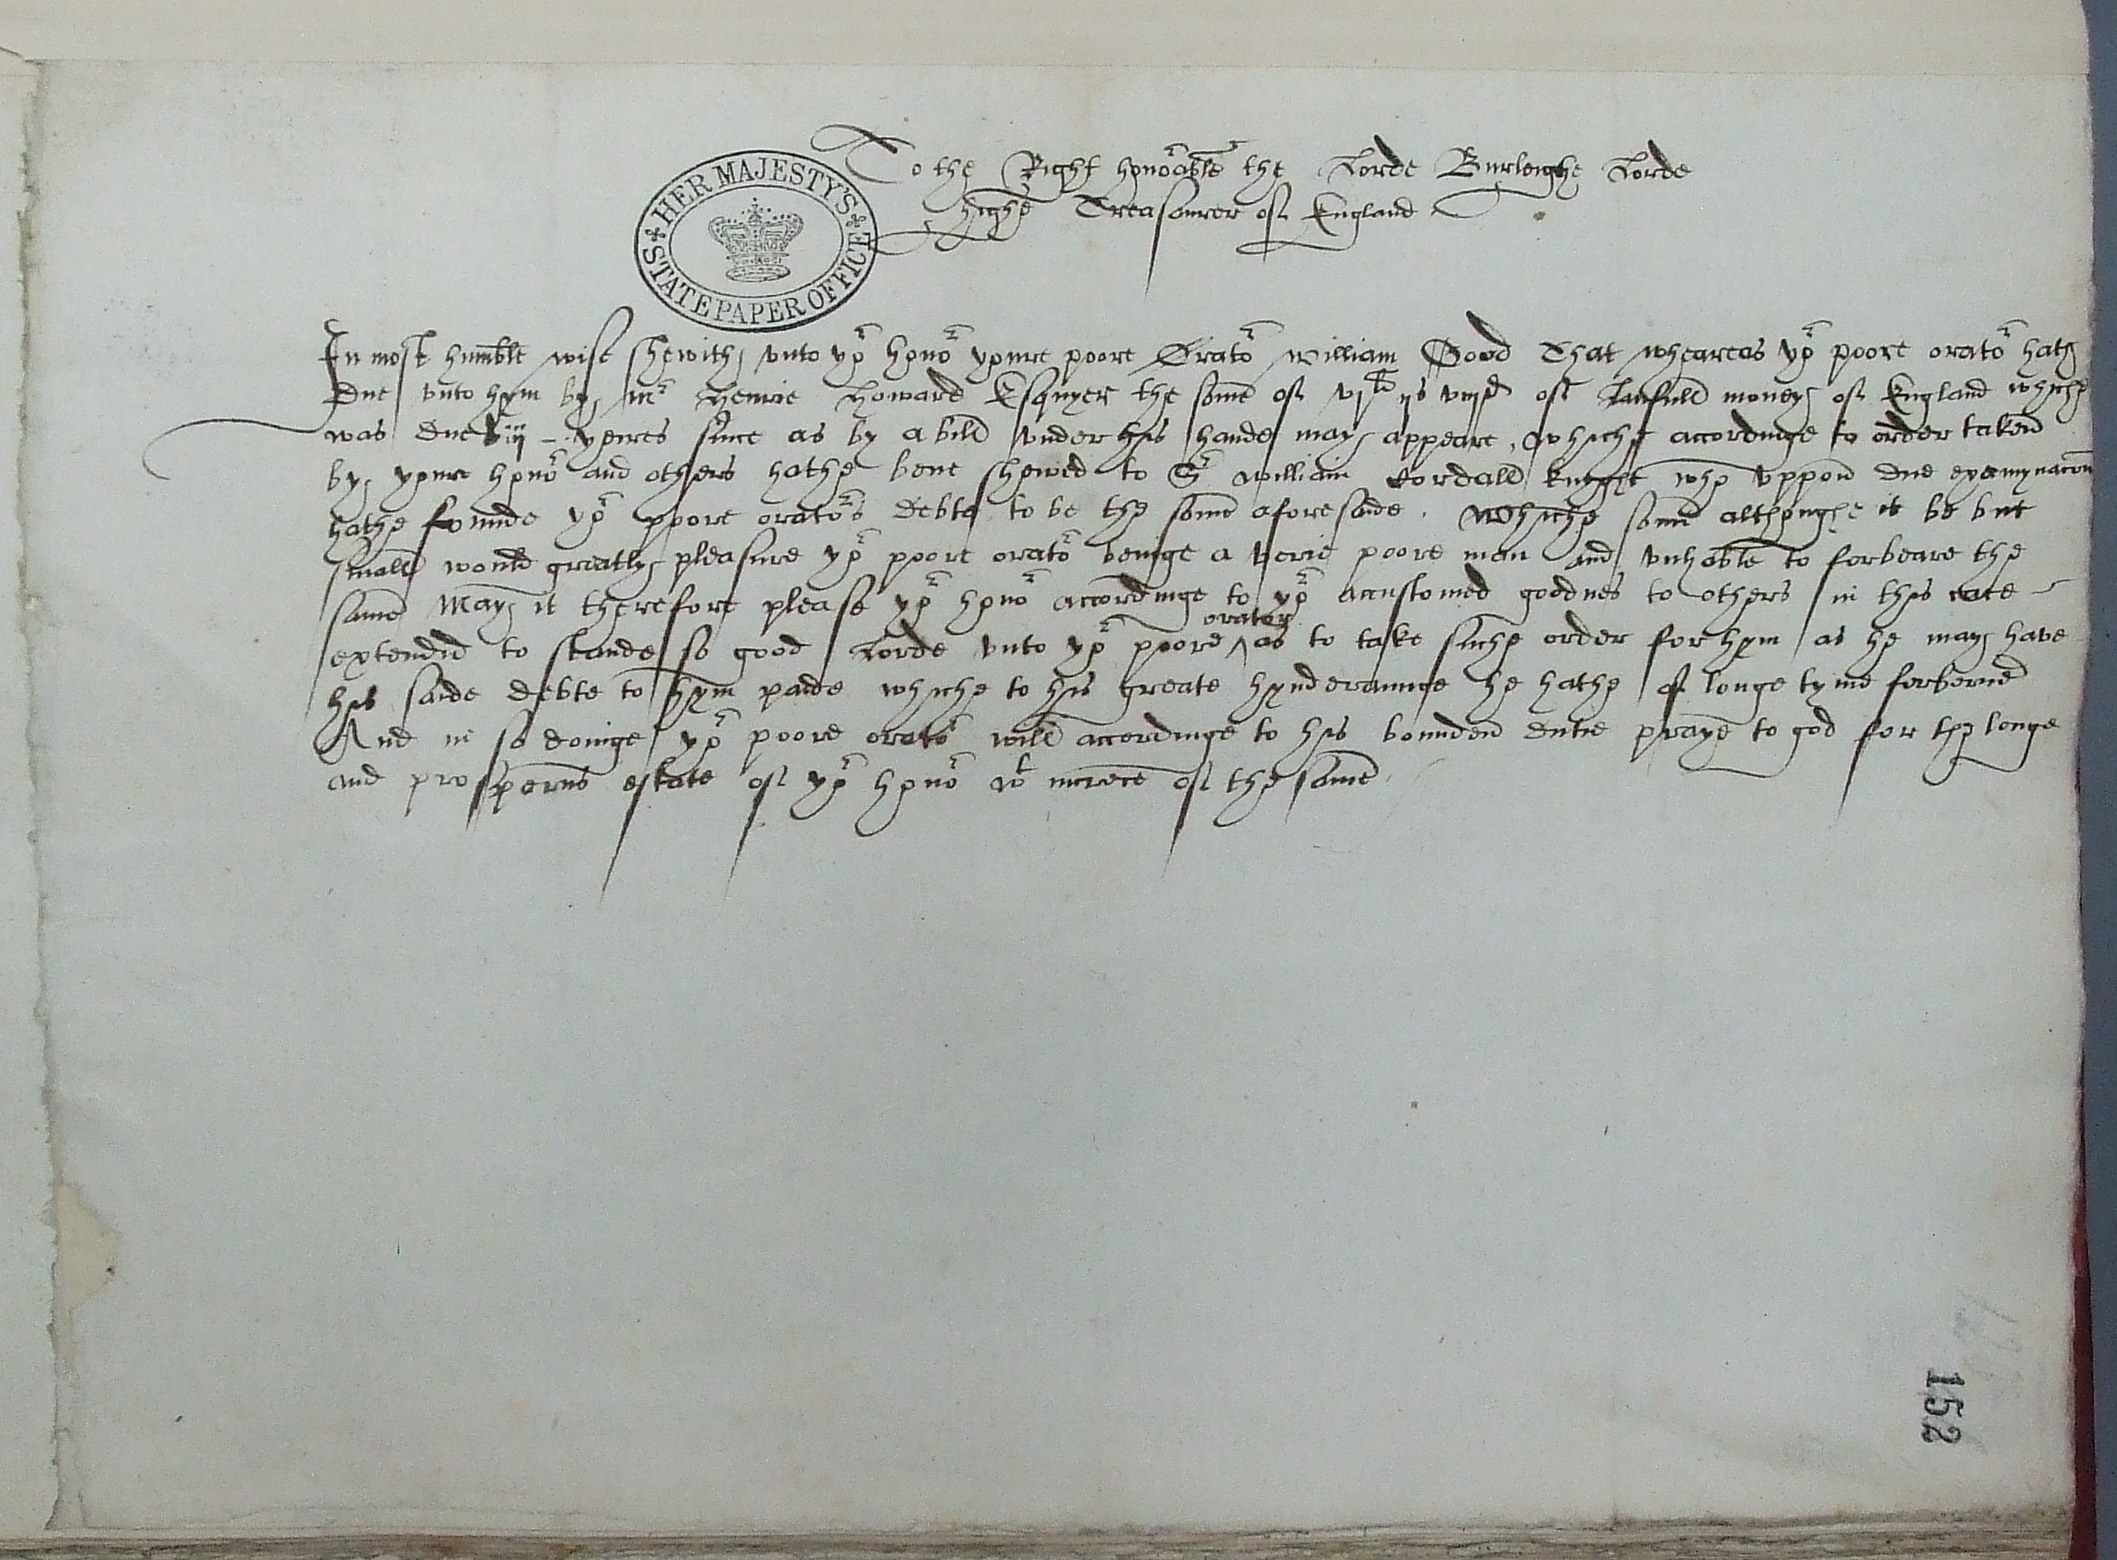 To the Right honorable the Lorde Burleighe Lorde
highe Treasourer of England
HER MAJESTY'S
STATE PAPER OFFICE
In most humble wise shewith unto yor honor youre poore Orator William Good That wheareas yor poore orator hath
due unto hym by Mr Henrie Howard Esquyer the some of vjli ijs viijd of laufull money of England whiche
was due viij yeares since as by a bill under his hande may appeare, whiche accordinge to order taken
by youre honor and others hathe bene shewed to Sr William Cordall knyght who uppon due examynacon
hathe founde yor poore orators debte to be the some aforesaide. Whiche some althoughe it be but
small would greatly pleasure yor poore orator beinge a verie poore man and unhable to forbeare the
same May it therefore please yor honor accordinge to yor accustomed goodnes to others in this case
extendid to stande so good Lorde unto yor poore ^orator as to take suche order for hym as he may have
his saide debte to hym paide whiche to his greate hynderaunce he hathe of longe tyme forborne
And in so doinge yor poore orator will accordinge to his bounden dutie praye to god for the longe
and prosperus estate of yor honor wt increce of the same
152